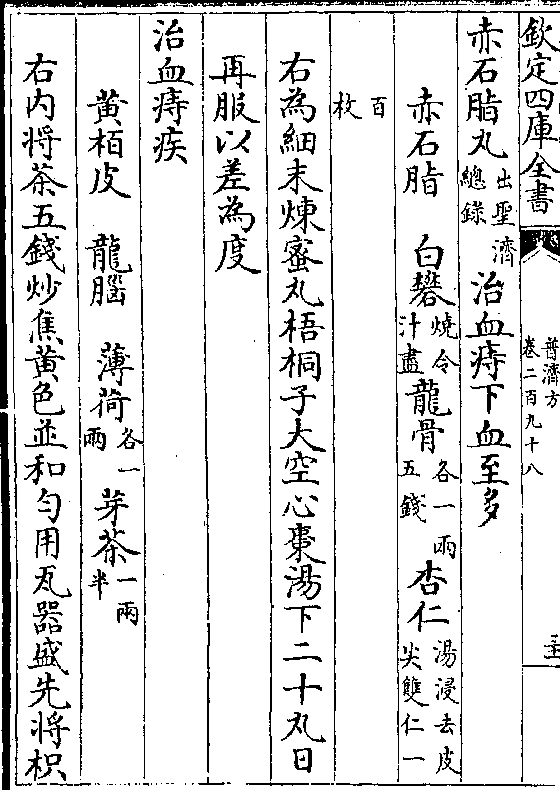 欽定四庫全書
普濟方
卷二百九十八
赤石脂丸出聖濟總錄治血痔下血至多
赤石脂 白礬燒令汁盡龍骨各一兩五錢杏仁湯浸去皮尖雙仁一
百枚
右為細末煉蜜丸梧桐子大空心棗湯下二十丸日
再服以差為度
治血痔疾
黄栢皮 龍腦 薄荷各一兩 芽茶一兩半
右内將茶五錢炒焦黄色並和匀用瓦器盛先將枳